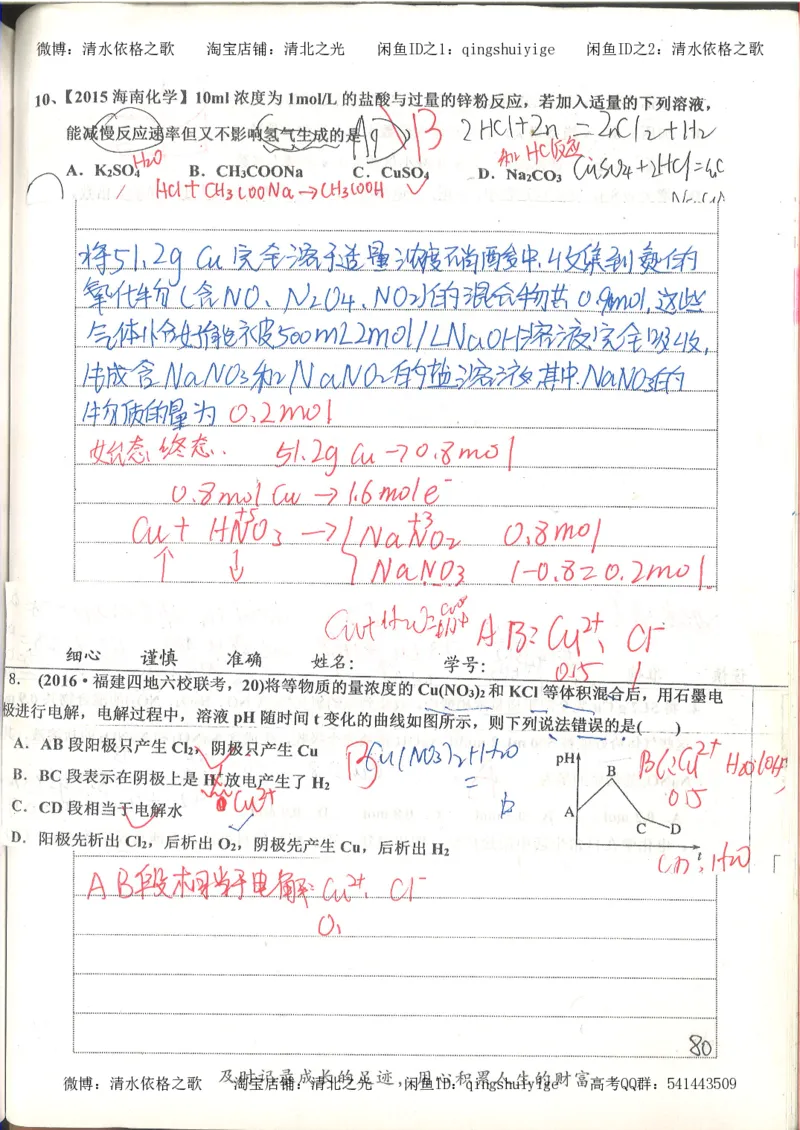 微博：清水依格之歌 淘宝店铺：清北之光 闲鱼ID之1：qingshuiyige 闲鱼ID之2：清水依格之歌
10、【2015 海南化学】10ml 浓度为 1mol/L 的盐酸与过量的锌粉反应，若加入适量的下列溶液，
能减慢反应速率但又不影响氢气生成的是 B 2HCl+Zn=ZnCl2+H2
A．K2SO4 B．CH3COONa C．CuSO4 D．Na2CO3
H2O 和HCl反应 CuSO4+2HCl=
HCl+CH3COONa→CH3COOH
将51.2g Cu完全溶于适量浓度不当酸中,收集到氮的
氧化物(含NO、N2O4、NO2)的混合物共0.9mol,这些
气体恰好能被500mL2mol/LNaOH溶液完全吸收,
生成含NaNO3和NaNO2的盐溶液,其中NaNO3的
物质的量为 0.2mol
始态.终态. 51.2g Cu→0.8mol
0.8mol Cu→1.6mol e-
Cu+HNO3→ NaNO2 0.8mol
+5 +3
NaNO3 1-0.8=0.2mol
AB: Cu2+、Cl-
细心 谨慎 准确 姓名： 学号： 0.5 1
8． （2016·福建四地六校联考，20)将等物质的量浓度的 Cu(NO3)2 和 KCl 等体积混合后，用石墨电
极进行电解，电解过程中，溶液 pH 随时间 t 变化的曲线如图所示，则下列说法错误的是( )
A．AB 段阳极只产生 Cl2，阴极只产生 Cu B Cu(NO3)2+H2O
B．BC 段表示在阴极上是 H+放电产生了 H2
Cu2+
C．CD 段相当于电解水
D．阳极先析出 Cl2，后析出 O2，阴极先产生 Cu，后析出 H2
pH A B C D t
BC: Cu2+ H2O(OH-
0.5
CD: H2O
AB段相当于电解: Cu2+、Cl-
0.
80
及时记录成长的足迹，用心积累人生的财富
微博：清水依格之歌 淘宝店铺：清北之光 闲鱼ID：qingshuiyige 高考QQ群：541443509